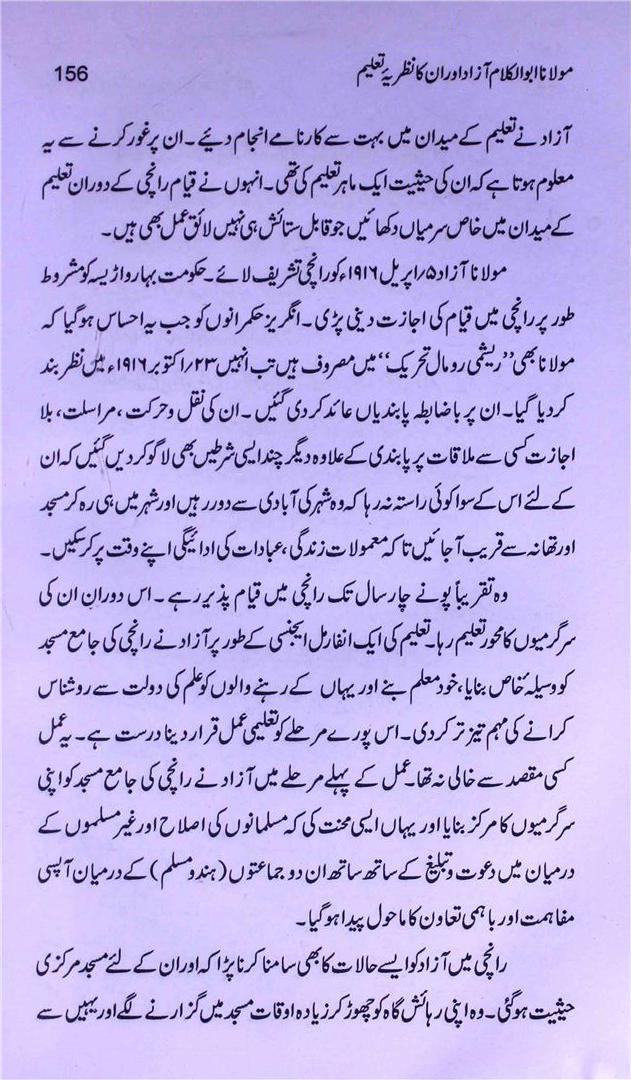 مولانا ابوالکلام آزاد اور ان کا نظریۂ تعلیم 156
آزاد نے تعلیم کے میدان میں بہت سے کارنامے انجام دیئے۔ ان پر غور کرنے سے یہ
معلوم ہوتا ہے کہ ان کی حیثیت ایک ماہر تعلیم کی تھی۔ انہوں نے قیام رانچی کے دوران تعلیم
کے میدان میں خاص سرمیاں دکھائیں جو قابل ستائش ہی نہیں لائق عمل بھی ہیں۔
مولانا آزاد ۵/اپریل ۱۹۱۶ء کو رانچی تشریف لائے۔ حکومت بہار و اڑیسہ کو مشروط
طور پر رانچی میں قیام کی اجازت دینی پڑی۔ انگریز حکمرانوں کو جب یہ احساس ہوگیا کہ
مولانا بھی ”ریشمی رومال تحریک“ میں مصروف ہیں تب انہیں ۲۳/اکتوبر ۱۹۱۶ء میں نظر بند
کردیا گیا۔ ان پر باضابطہ پابندیاں عائد کردی گئیں۔ ان کی نقل و حرکت، مراسلت، بلا
اجازت کسی سے ملاقات پر پابندی کے علاوہ دیگر چند ایسی شرطیں بھی لاگو کردیں گئیں کہ ان
کے لئے اس کے سوا کوئی راستہ نہ رہا کہ وہ شہر کی آبادی سے دور رہیں اور شہر میں ہی رہ کر مسجد
اور تھانہ سے قریب آجائیں تاکہ معمولات زندگی، عبادات کی ادائیگی اپنے وقت پر کرسکیں۔
وہ تقریباً پونے چار سال تک رانچی میں قیام پذیر رہے۔ اس دوران ان کی
سرگرمیوں کا محور تعلیم رہا۔ تعلیم کی ایک انفارمل ایجنسی کے طور پر آزاد نے رانچی کی جامع مسجد
کو وسیلۂ خاص بنایا، خود معلم بنے اور یہاں کے رہنے والوں کو علم کی دولت سے روشناس
کرانے کی مہم تیز تر کردی۔ اس پورے مرحلے کو تعلیمی عمل قرار دینا درست ہے۔ یہ عمل
کسی مقصد سے خالی نہ تھا۔ عمل کے پہلے مرحلے میں آزاد نے رانچی کی جامع مسجد کو اپنی
سرگرمیوں کا مرکز بنایا اور یہاں ایسی محنت کی کہ مسلمانوں کی اصلاح اور غیر مسلموں کے
درمیان میں دعوت و تبلیغ کے ساتھ ساتھ ان دو جماعتوں (ہندو مسلم) کے درمیان آپسی
مفاہمت اور باہمی تعاون کا ماحول پیدا ہوگیا۔
رانچی میں آزاد کو ایسے حالات کا بھی سامنا کرنا پڑا کہ اور ان کے لئے مسجد مرکزی
حیثیت ہوگئی۔ وہ اپنی رہائش گاہ کو چھوڑ کر زیادہ اوقات مسجد میں گزارنے لگے اور یہیں سے